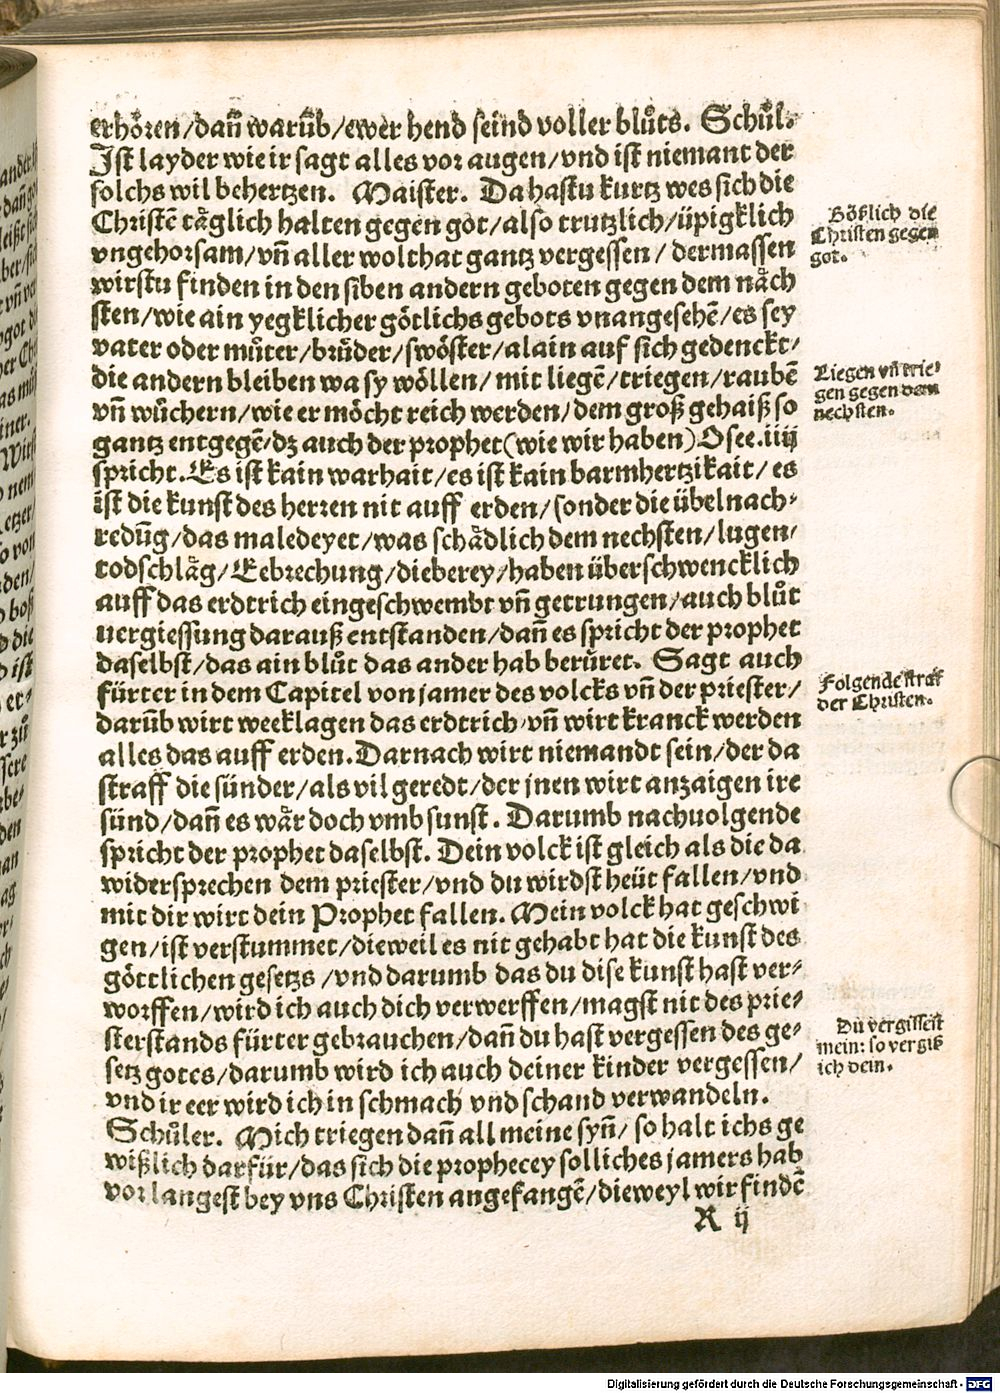 erhören/dañ warũb/ewer hend seind voller blůts. Schůl.
Ist layder wie ir sagt alles vor augen/vnd ist niemant der
solchs wil behertzen. Maister. Da hastu kurtz wes sich die
Christẽ täglich halten gegen got/also trutzlich/üpigklich
vngehorsam/vñ aller wolthat gantz vergessen/ dermassen
wirstu finden in den siben andern geboten gegen dem näch
sten/wie ain yegklicher götlichs gebots vnangesehẽ/es sey
vater oder můter/brůder/swöster/alain auf sich gedenckt/
die andern bleiben wa sy wöllen/ mit liegẽ/triegen/raubẽ
vñ wůchern/wie er möcht reich werden/dem groß gehaiß so
gantz entgegẽ/dz auch der prophet(wie wir haben)Osee.iiij
spricht. Es ist kain warhait/es ist kain barmhertzikait/ es
ist die kunst des herren nit auff erden/sonder die übelnach-
redũg/das maledeyet/was schädlich dem nechsten/lugen/
todschläg/Eebrechung/dieberey/haben überschwencklich
auff das erdtrich eingeschwembt vñ getrungen/auch blůt
uergiessung darauß entstanden/dañ es spricht der prophet
daselbst/das ain blůt das ander hab berůret. Sagt auch
fürter in dem Capitel von jamer des volcks vñ der priester/
darũb wirt weeklagen das erdtrich/vñ wirt kranck werden
alles das auff erden. Darnach wirt niemandt sein/der da
straff die sünder/als vil geredt/der jnen wirt anzaigen ire
sünd/dañ es wär doch vmb sunst. Darumb nachuolgende
spricht der prophet daselbst. Dein volck ist gleich als die da
widersprechen dem priester/vnd du wirdst heüt fallen/vnd
mit dir wirt dein Prophet fallen. Mein volck hat geschwi
gen/ist verstummet/dieweil es nit gehabt hat die kunst des
göttlichen gesetzs /vnd darumb das du dise kunst hast ver-
worffen/wird ich auch dich verwerffen/magst nit des prie-
sterstands fürter gebrauchen/dañ du hast vergessen des ge-
setz gotes/darumb wird ich auch deiner kinder vergessen/
vnd ir eer wird ich in schmach vnd schand verwandeln.
Schůler. Mich triegen dañ all meine syñ/ so halt ichs ge
wißlich darfür/das sich die prophecey solliches jamers hab
vor langest bey vns Christen angefangẽ/dieweyl wir findẽ
R ij
Bößlich die
Christen gegen
got.
Liegen vñ trie-
gen gegen dem
nechsten.
Folgende straf
der Christen.
Du vergissest
mein: so vergiß
ich dein.
Digitalisierung gefördert durch die Deutsche Forschungsgemeinschaft - DFG